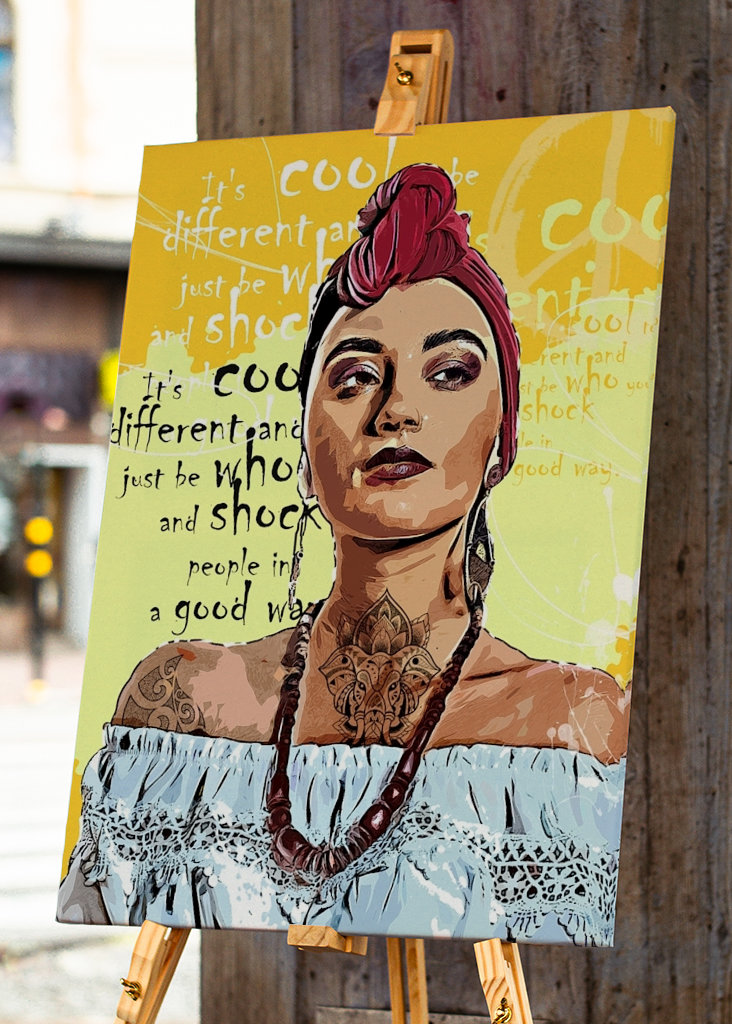 It's cool be
different an
just be wh
and shoc
coo
ent an
cool
rent and
be who you
shock
in
good way.
It's coo
different and
just be who
and shock
people in
a good wa